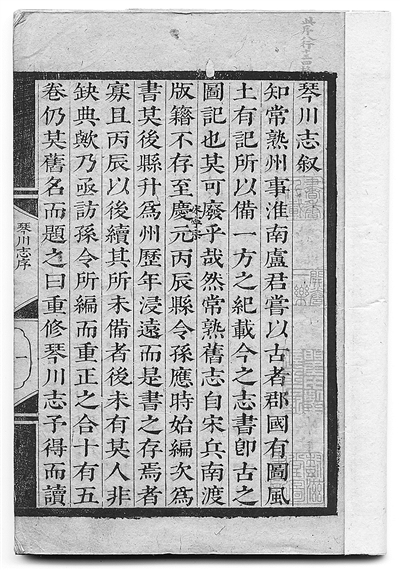 琴川志叙
知常熟州事淮南盧君嘗以古者郡國有圖風
土有記所以備一方之紀載今之志書卽古之
圖記也其可廢乎哉然常熟舊志自宋兵南渡
版籍不存至慶元丙辰縣令孫應時始編次爲
書其後縣升爲州歷年浸遠而是書之存焉者
寡且丙辰以後續其所未備者後未有其人非
缺典歟乃亟訪孫令所編而重正之合十有五
卷仍其舊名而題之曰重修琴川志予得而讀
琴川志序
一